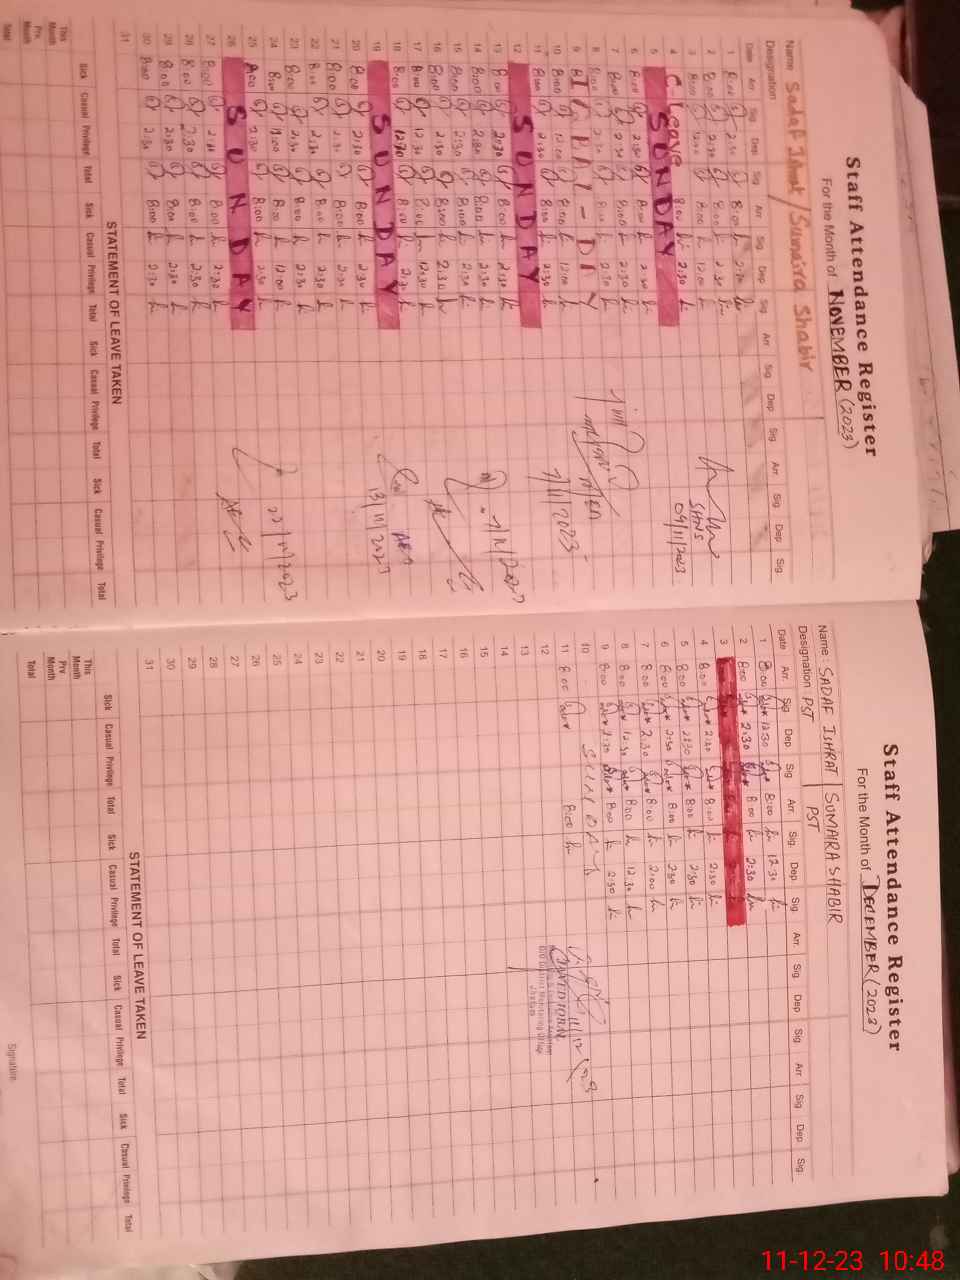 Staff Attendance Register
For the Month of NOVEMBER (2023)
Name Sadaf Ishrat / Sumaira Shabir
Designation
Date Arr. Sig Dep Sig Arr Sig Dep Sig Arr Sig Dep Sig Arr Sig Dep Sig
1 8:00 2:30 8:00
2 8:00 2:30 8:00 2:30
3 8:00 12:00 8:00 12:00
4 C. Leave 8:00 2:30
5 SUNDAY
6 8:00 2:30 8:00 2:30
7 8:00 2:30 8:00 2:30
8 8:00 2:30 8:00 2:30
9
10 8:00 12:00 8:00 12:00
11 8:00 2:30 8:00 2:30
12 SUNDAY
13 8:00 2:30 8:00 2:30
14 8:00 2:30 8:00 2:30
15 8:00 2:30 8:00 2:30
16 8:00 2:30 8:00 2:30
17 8:00 12:30 8:00 12:30
18 8:00 12:30 8:00 2:30
19 SUNDAY
20 8:00 2:30 8:00 2:30
21 8:00 2:30 8:00 2:30
22 8:00 2:30 8:00 2:30
23 8:00 2:30 8:00 2:30
24 8:00 12:00 8:00 12:00
25 8:00 2:30 8:00 2:30
26 SUNDAY
27 8:00 2:30 8:00 2:30
28 8:00 2:30 8:00 2:30
29 8:00 2:30 8:00 2:30
30 8:00 2:30 8:00 2:30
31
SHNS
09/11/2023
7/11/2023
13/11/2023
22/11/2023
STATEMENT OF LEAVE TAKEN
Sick Casual Privilege Total Sick Casual Privilege Total Sick Casual Privilege Total Sick Casual Privilege Total
This Month
Prv. Month
Total
Staff Attendance Register
For the Month of DECEMBER (2023)
Name: SADAF ISHRAT SUMAIRA SHABIR
Designation PST PST
Date Arr. Sig Dep Sig Arr. Sig. Dep Sig. Arr. Sig. Dep Sig. Arr Sig. Dep Sig.
1 8:00 12:30 8:00 12:30
2 8:00 2:30 8:00 2:30
3
4 8:00 2:30 8:00 2:30
5 8:00 2:30 8:00 2:30
6 8:00 2:30 8:00 2:30
7 8:00 2:30 8:00 2:00
8 8:00 12:30 8:00 12:30
9 8:00 2:30 8:00 2:30
10 SUNDAY
11 8:00 8:00
12
13
14
15
16
17
18
19
20
21
22
23
24
25
26
27
28
29
30
31
11/12/23
STATEMENT OF LEAVE TAKEN
Sick Casual Privilege Total Sick Casual Privilege Total Sick Casual Privilege Total Sick Casual Privilege Total
This Month
Prv Month
Total
Signature
11-12-23 10:48